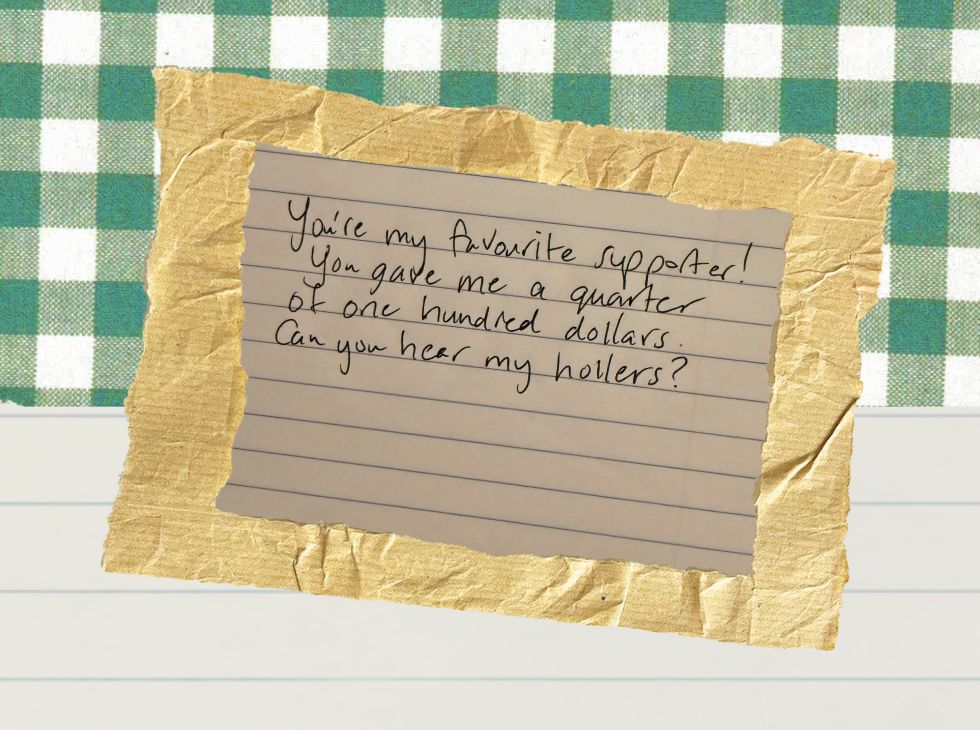 You're my favourite supporter!
You gave me a quarter
of one hundred dollars.
Can you hear my hollers?